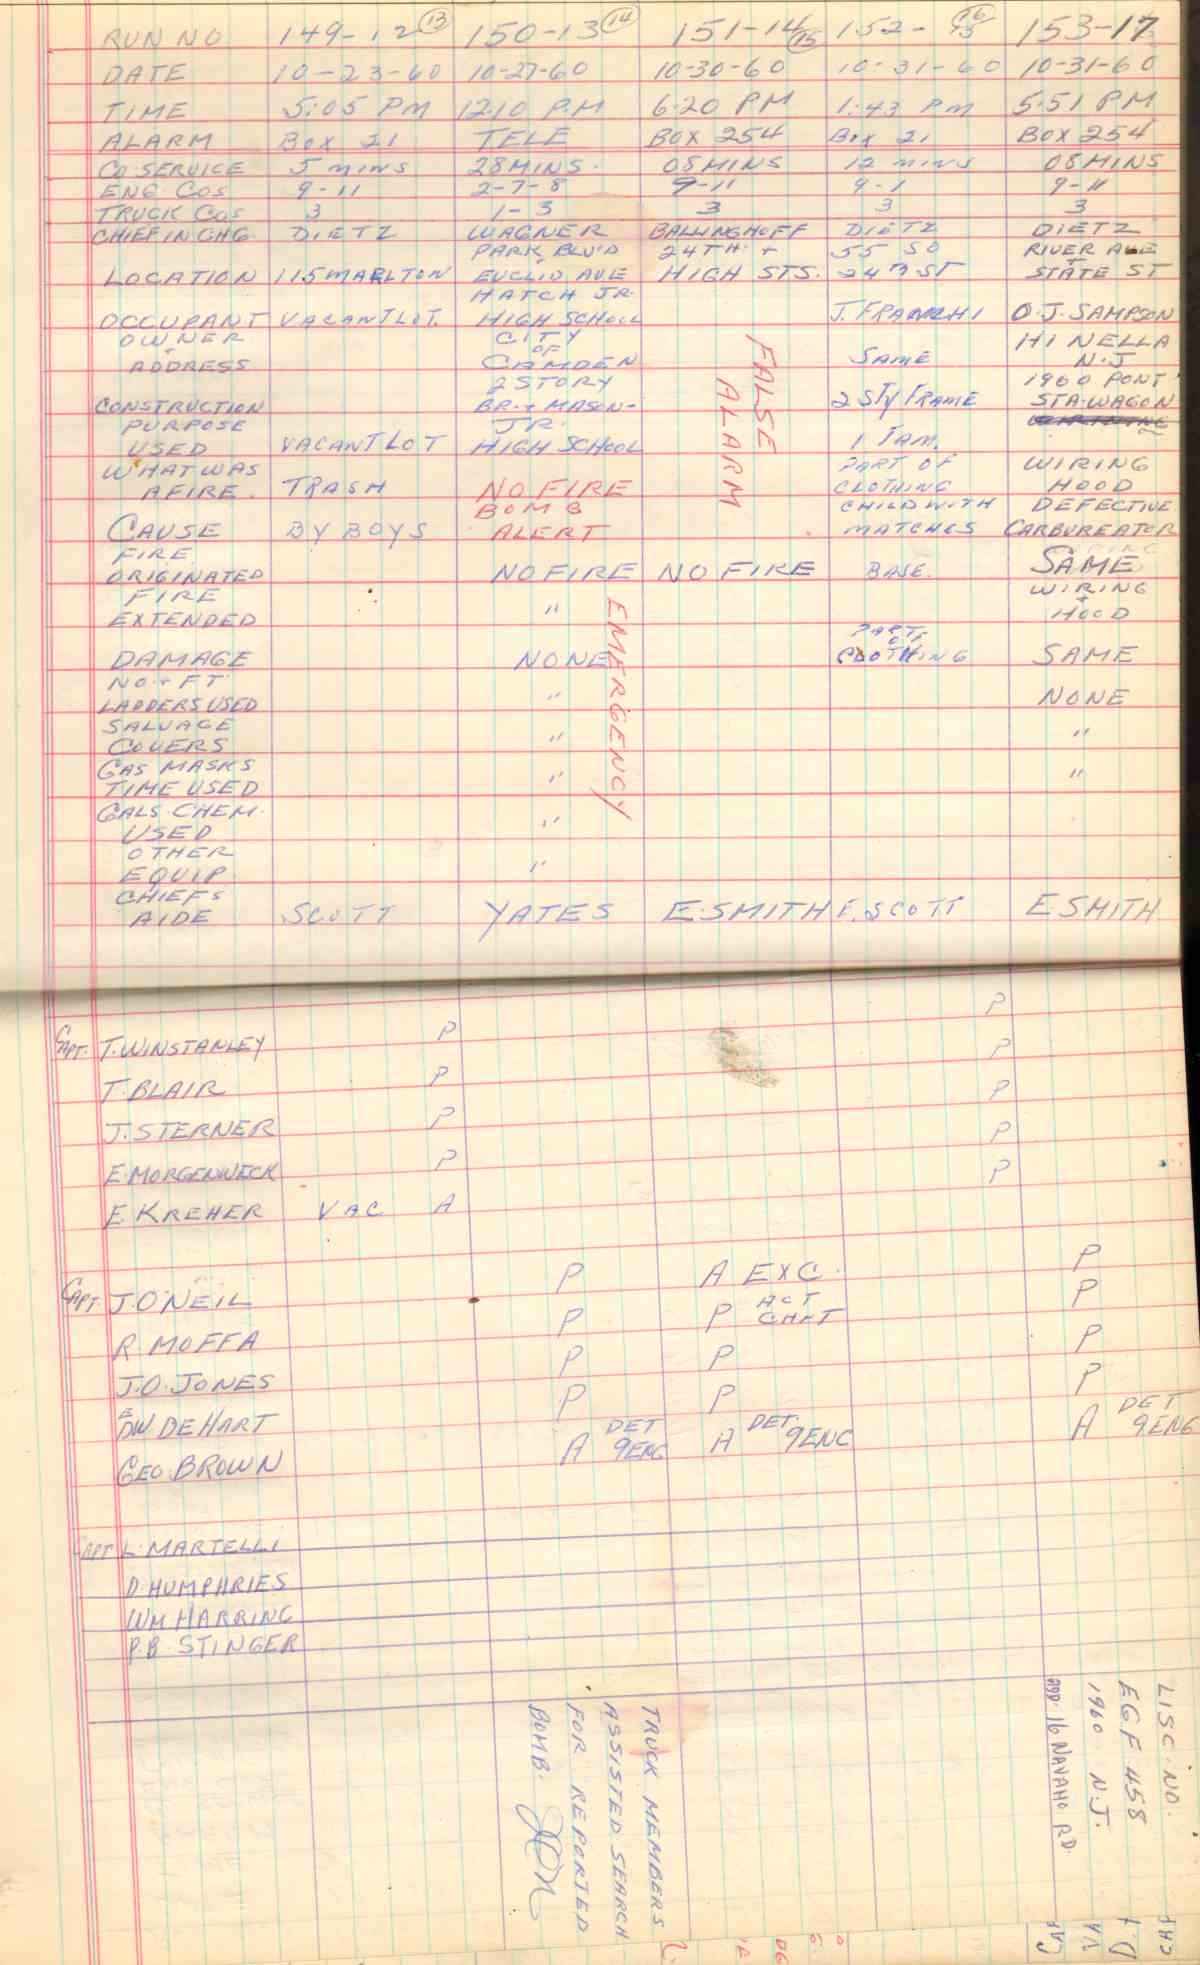 RUN NO 149-12 (13) 150-13 (14) 151-14 (15) 152- (16) 153-17
DATE 10-23-60 10-27-60 10-30-60 10-31-60 10-31-60
TIME 5:05 PM 12:10 P.M 6:20 PM 1:43 PM 5:51 PM
ALARM BOX 21 TELE BOX 254 BOX 21 BOX 254
CO SERVICE 5 MINS 28 MINS. 08 MINS 12 MINS 08 MINS
ENG COS 9-11 2-7-8 9-11 9-1 9-11
TRUCK COS 3 1-3 3 3 3
CHIEF IN CHG. DIETZ WAGNER BALLINGHOFF DIETZ DIETZ
PARK BLV'D 24TH + 55 SO RIVER AVE
LOCATION 115 MARLTON EUCLID AVE HIGH STS. 24TH ST + STATE ST
HATCH JR.
OCCUPANT VACANT LOT. HIGH SCHOOL J. FRANCHI O.J. SAMPSON
OWNER CITY HI NELLA
+ OF
ADDRESS CAMDEN SAME N.J
2 STORY 1960 PONT
CONSTRUCTION BR. + MASON- 2 STY FRAME STA-WAGON
PURPOSE JR.
USED VACANT LOT HIGH SCHOOL 1 FAM.
WHAT WAS PART OF WIRING
AFIRE. TRASH NO FIRE CLOTHING HOOD
BOMB CHILD WITH DEFECTIVE
CAUSE BY BOYS ALERT MATCHES CARBUREATOR
FALSE
ALARM
FIRE
ORIGINATED NO FIRE NO FIRE BASE. SAME
FIRE WIRING
EXTENDED " + HOOD
PART OF
DAMAGE NONE CLOTHING SAME
EMERGENCY
NO. + FT
LADDERS USED " NONE
SALVAGE
COVERS " "
GAS MASKS
TIME USED " "
GALS. CHEM.
USED "
OTHER
EQUIP. "
CHIEFS
AIDE SCOTT YATES E. SMITH F. SCOTT E SMITH
CAPT. T. WINSTANLEY P P
T. BLAIR P P
J. STERNER P P
E. MORGENWECK P P
E KREHER VAC A P
CAPT. J. O'NEIL P A EXC. P
R. MOFFA P P ACT CAPT P
J.O. JONES P P P
E DW DE HART P P P
GEO. BROWN A DET 9 ENG A DET. 9 ENG A DET 9 ENG
CAPT L. MARTELLI
D. HUMPHRIES
WM HARRING
P.B. STINGER
TRUCK MEMBERS
ASSISTED SEARCH
FOR REPORTED
BOMB.
LISC. NO.
EGF 458
1960 N.J.
ADD. 16 NAVAHO RD.